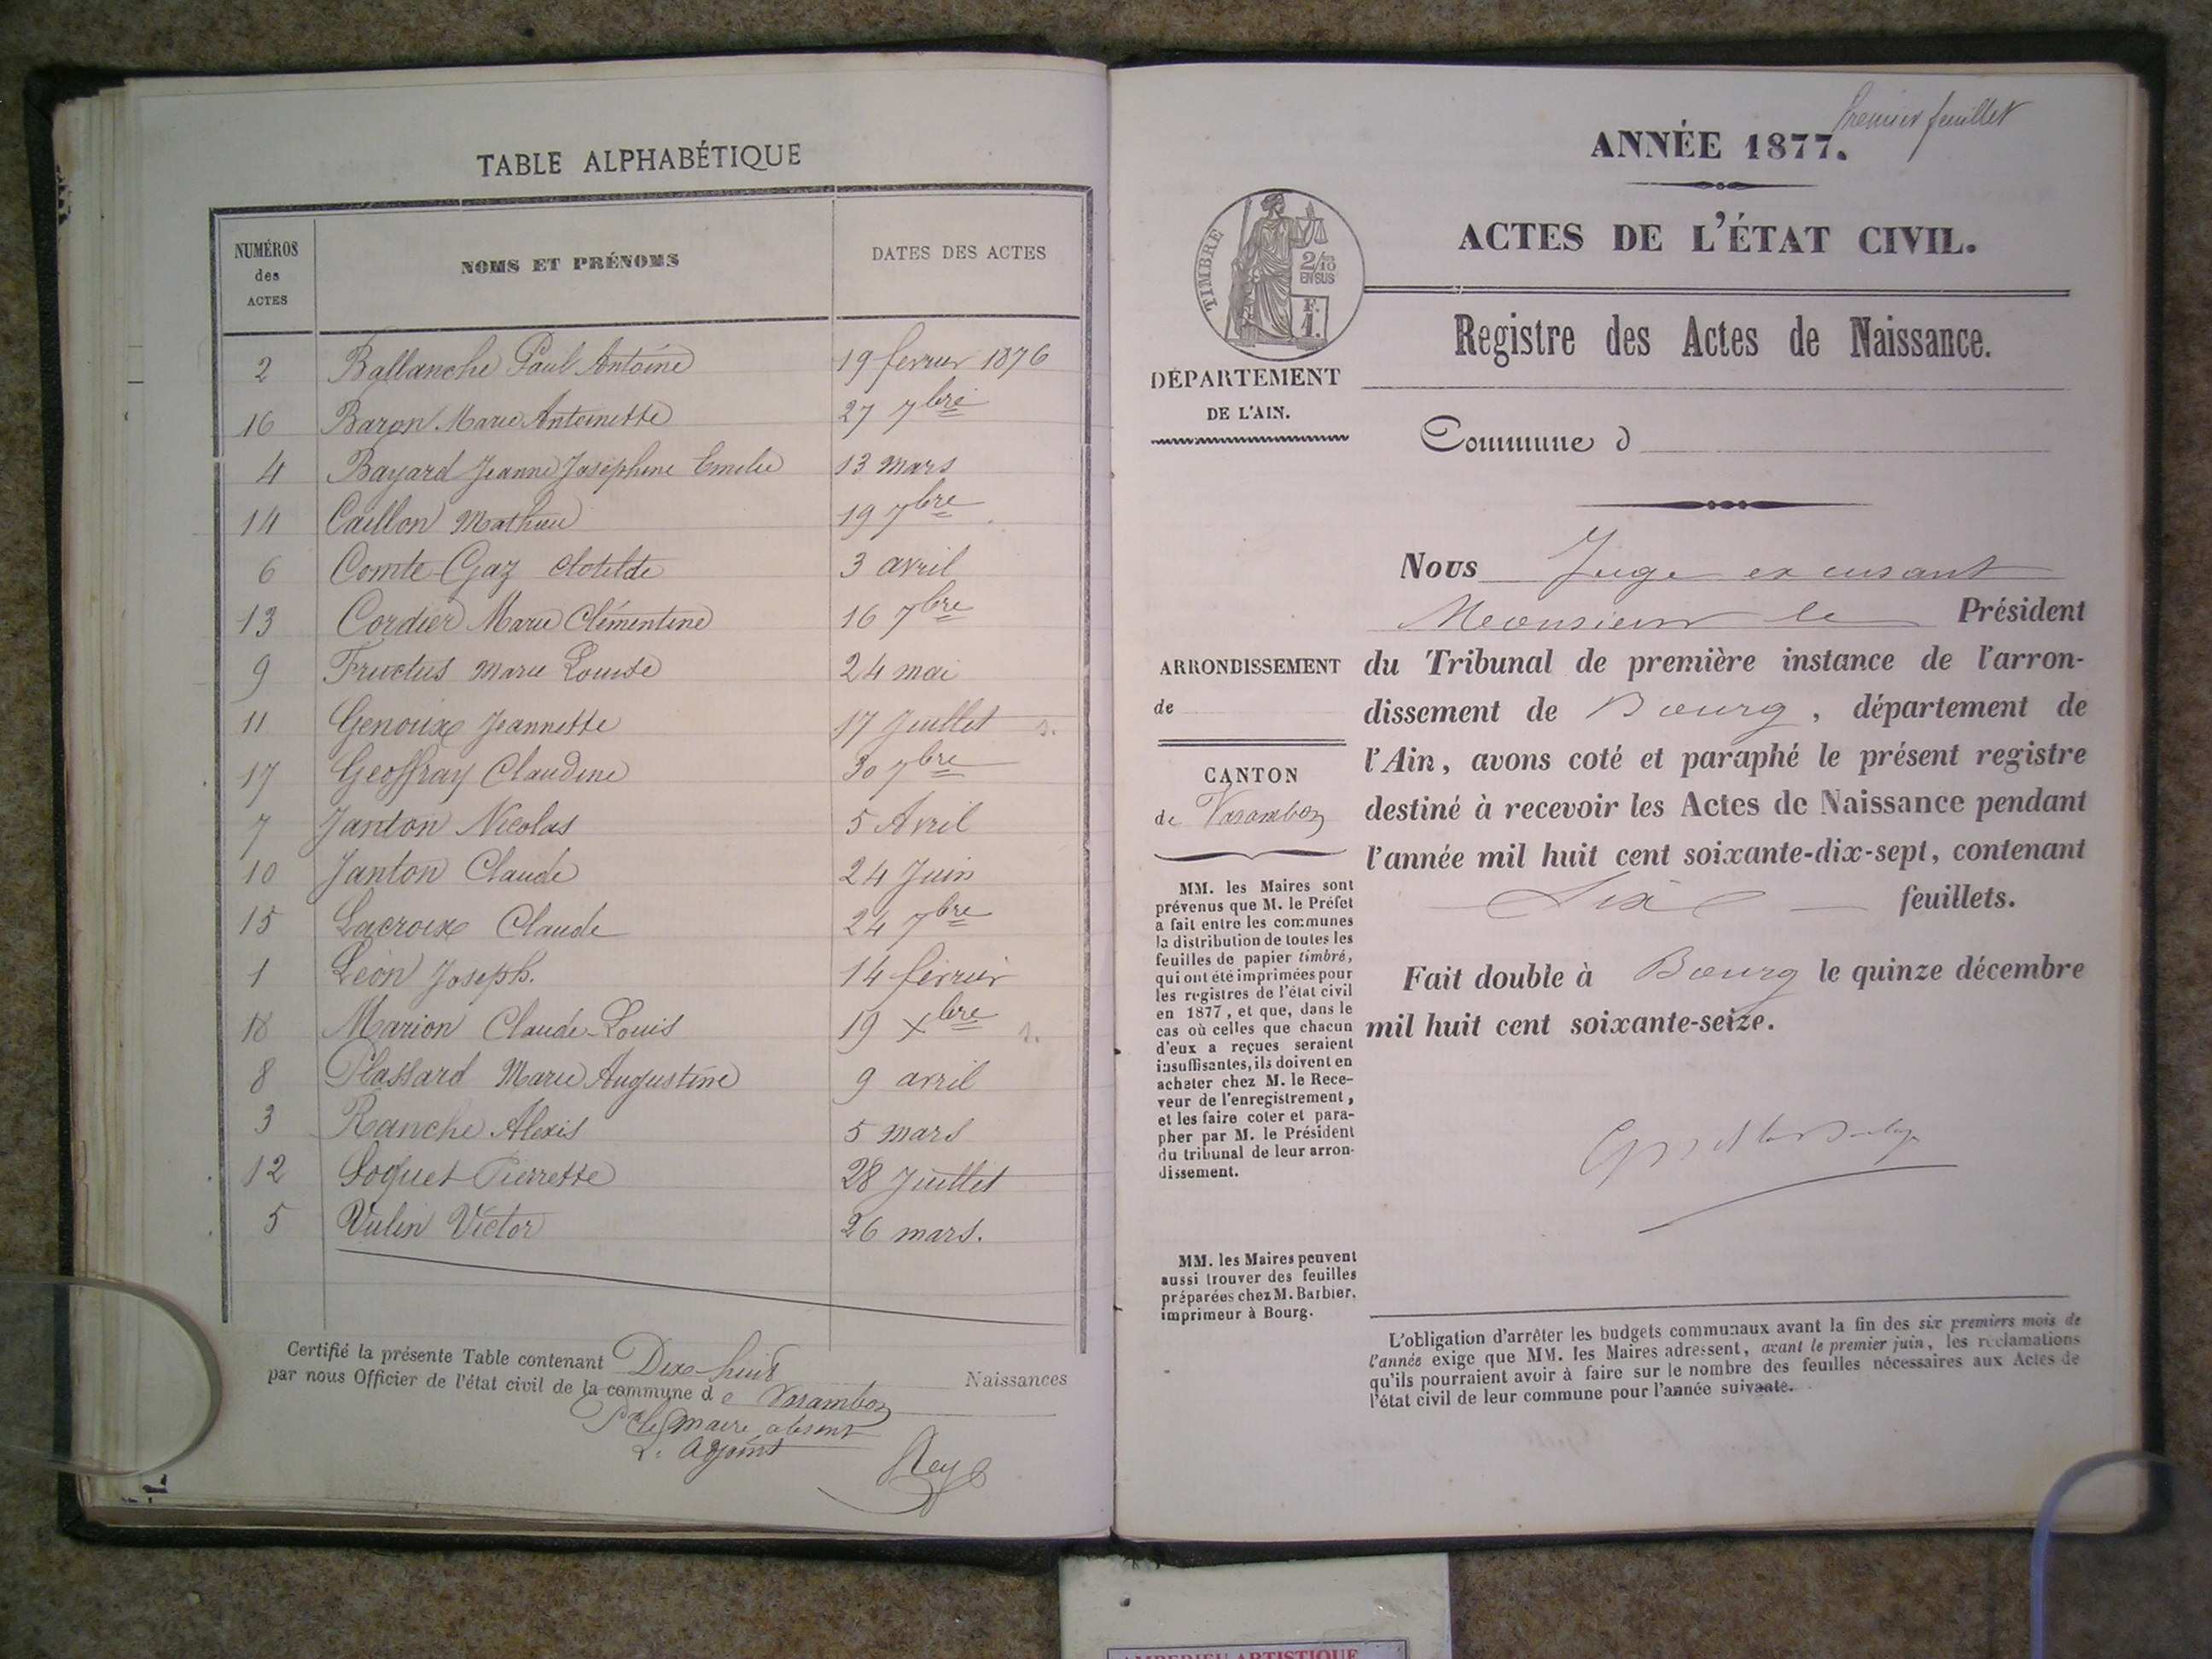 TABLE ALPHABÉTIQUE
NUMÉROS des ACTES
NOMS ET PRÉNOMS
DATES DES ACTES
2 Ballanche Paul Antoine 19 fevrier 1876
16 Baron Marie Antoinette 27 7bre
4 Bayard Jeanne Joséphine Emelie 13 mars
14 Caillon Mathieu 19 7bre
6 Comte-Gaz Clotilde 3 avril
13 Cordier Marie Clémentine 16 7bre
9 Fructus Marie Louise 24 mai
11 Genoux Jeannette 17 Juillet
17 Geoffray Claudine 30 7bre
7 Janton Nicolas 5 Avril
10 Janton Claude 24 Juin
15 Lacroix Claude 24 7bre
1 Léon Joseph. 14 février
18 Marion Claude-Louis 19 Xbre
8 Plassard Marie Augustine 9 avril
3 Ranche Alexis 5 mars
12 Soquet Pierrette 28 Juillet
5 Vulin Victor 26 mars.
Certifié la présente Table contenant Dix-huit Naissances
par nous Officier de l'état civil de la commune de Varambon
Pr le Maire absent
L. Adjoint
Rey
Premier feuillet
ANNÉE 1877.
ACTES DE L'ÉTAT CIVIL.
TIMBRE
2/10
EN SUS
F.
1.
Registre des Actes de Naissance.
DÉPARTEMENT
DE L'AIN.
Commune d
Nous Juge excusant
Monsieur le Président
du Tribunal de première instance de l'arron-
dissement de Bourg, département de
l'Ain, avons coté et paraphé le présent registre
destiné à recevoir les Actes de Naissance pendant
l'année mil huit cent soixante-dix-sept, contenant
Six feuillets.
Fait double à Bourg le quinze décembre
mil huit cent soixante-seize.
ARRONDISSEMENT
de
CANTON
de Varambon
MM. les Maires sont
prévenus que M. le Préfet
a fait entre les communes
la distribution de toutes les
feuilles de papier timbré,
qui ont été imprimées pour
les registres de l'état civil
en 1877, et que, dans le
cas où celles que chacun
d'eux a reçues seraient
insuffisantes, ils doivent en
acheter chez M. le Rece-
veur de l'enregistrement,
et les faire coter et para-
pher par M. le Président
du tribunal de leur arron-
dissement.
MM. les Maires peuvent
aussi trouver des feuilles
préparées chez M. Barbier,
imprimeur à Bourg.
L'obligation d'arrêter les budgets communaux avant la fin des six premiers mois de
l'année exige que MM. les Maires adressent, avant le premier juin, les réclamations
qu'ils pourraient avoir à faire sur le nombre des feuilles nécessaires aux Actes de
l'état civil de leur commune pour l'année suivante.
AMBERIEU ARTISTIQUE